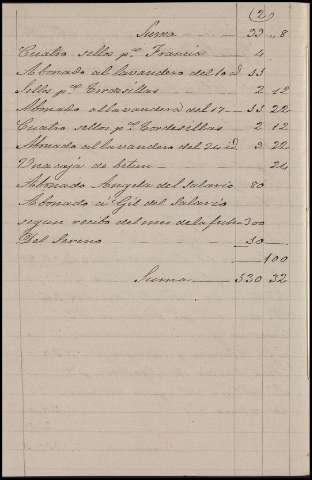 (2)
Suma 33 " 8
Cuatro sellos pª Francia 4
Abonado al lavandero del 10 id 33
Sellos pª Tordesillas 2 12
Abonado al lavandero del 17 33 22
Cuatro sellos pª Tordesillas 2 12
Abonado al lavandero del 24 id 3 22
Una caja de betun 24
Abonado Angela del Salario 80
Abonado á Gil del Salario
segun recibo del mes de la fecha 300
Del Sereno
100
Suma 530 32